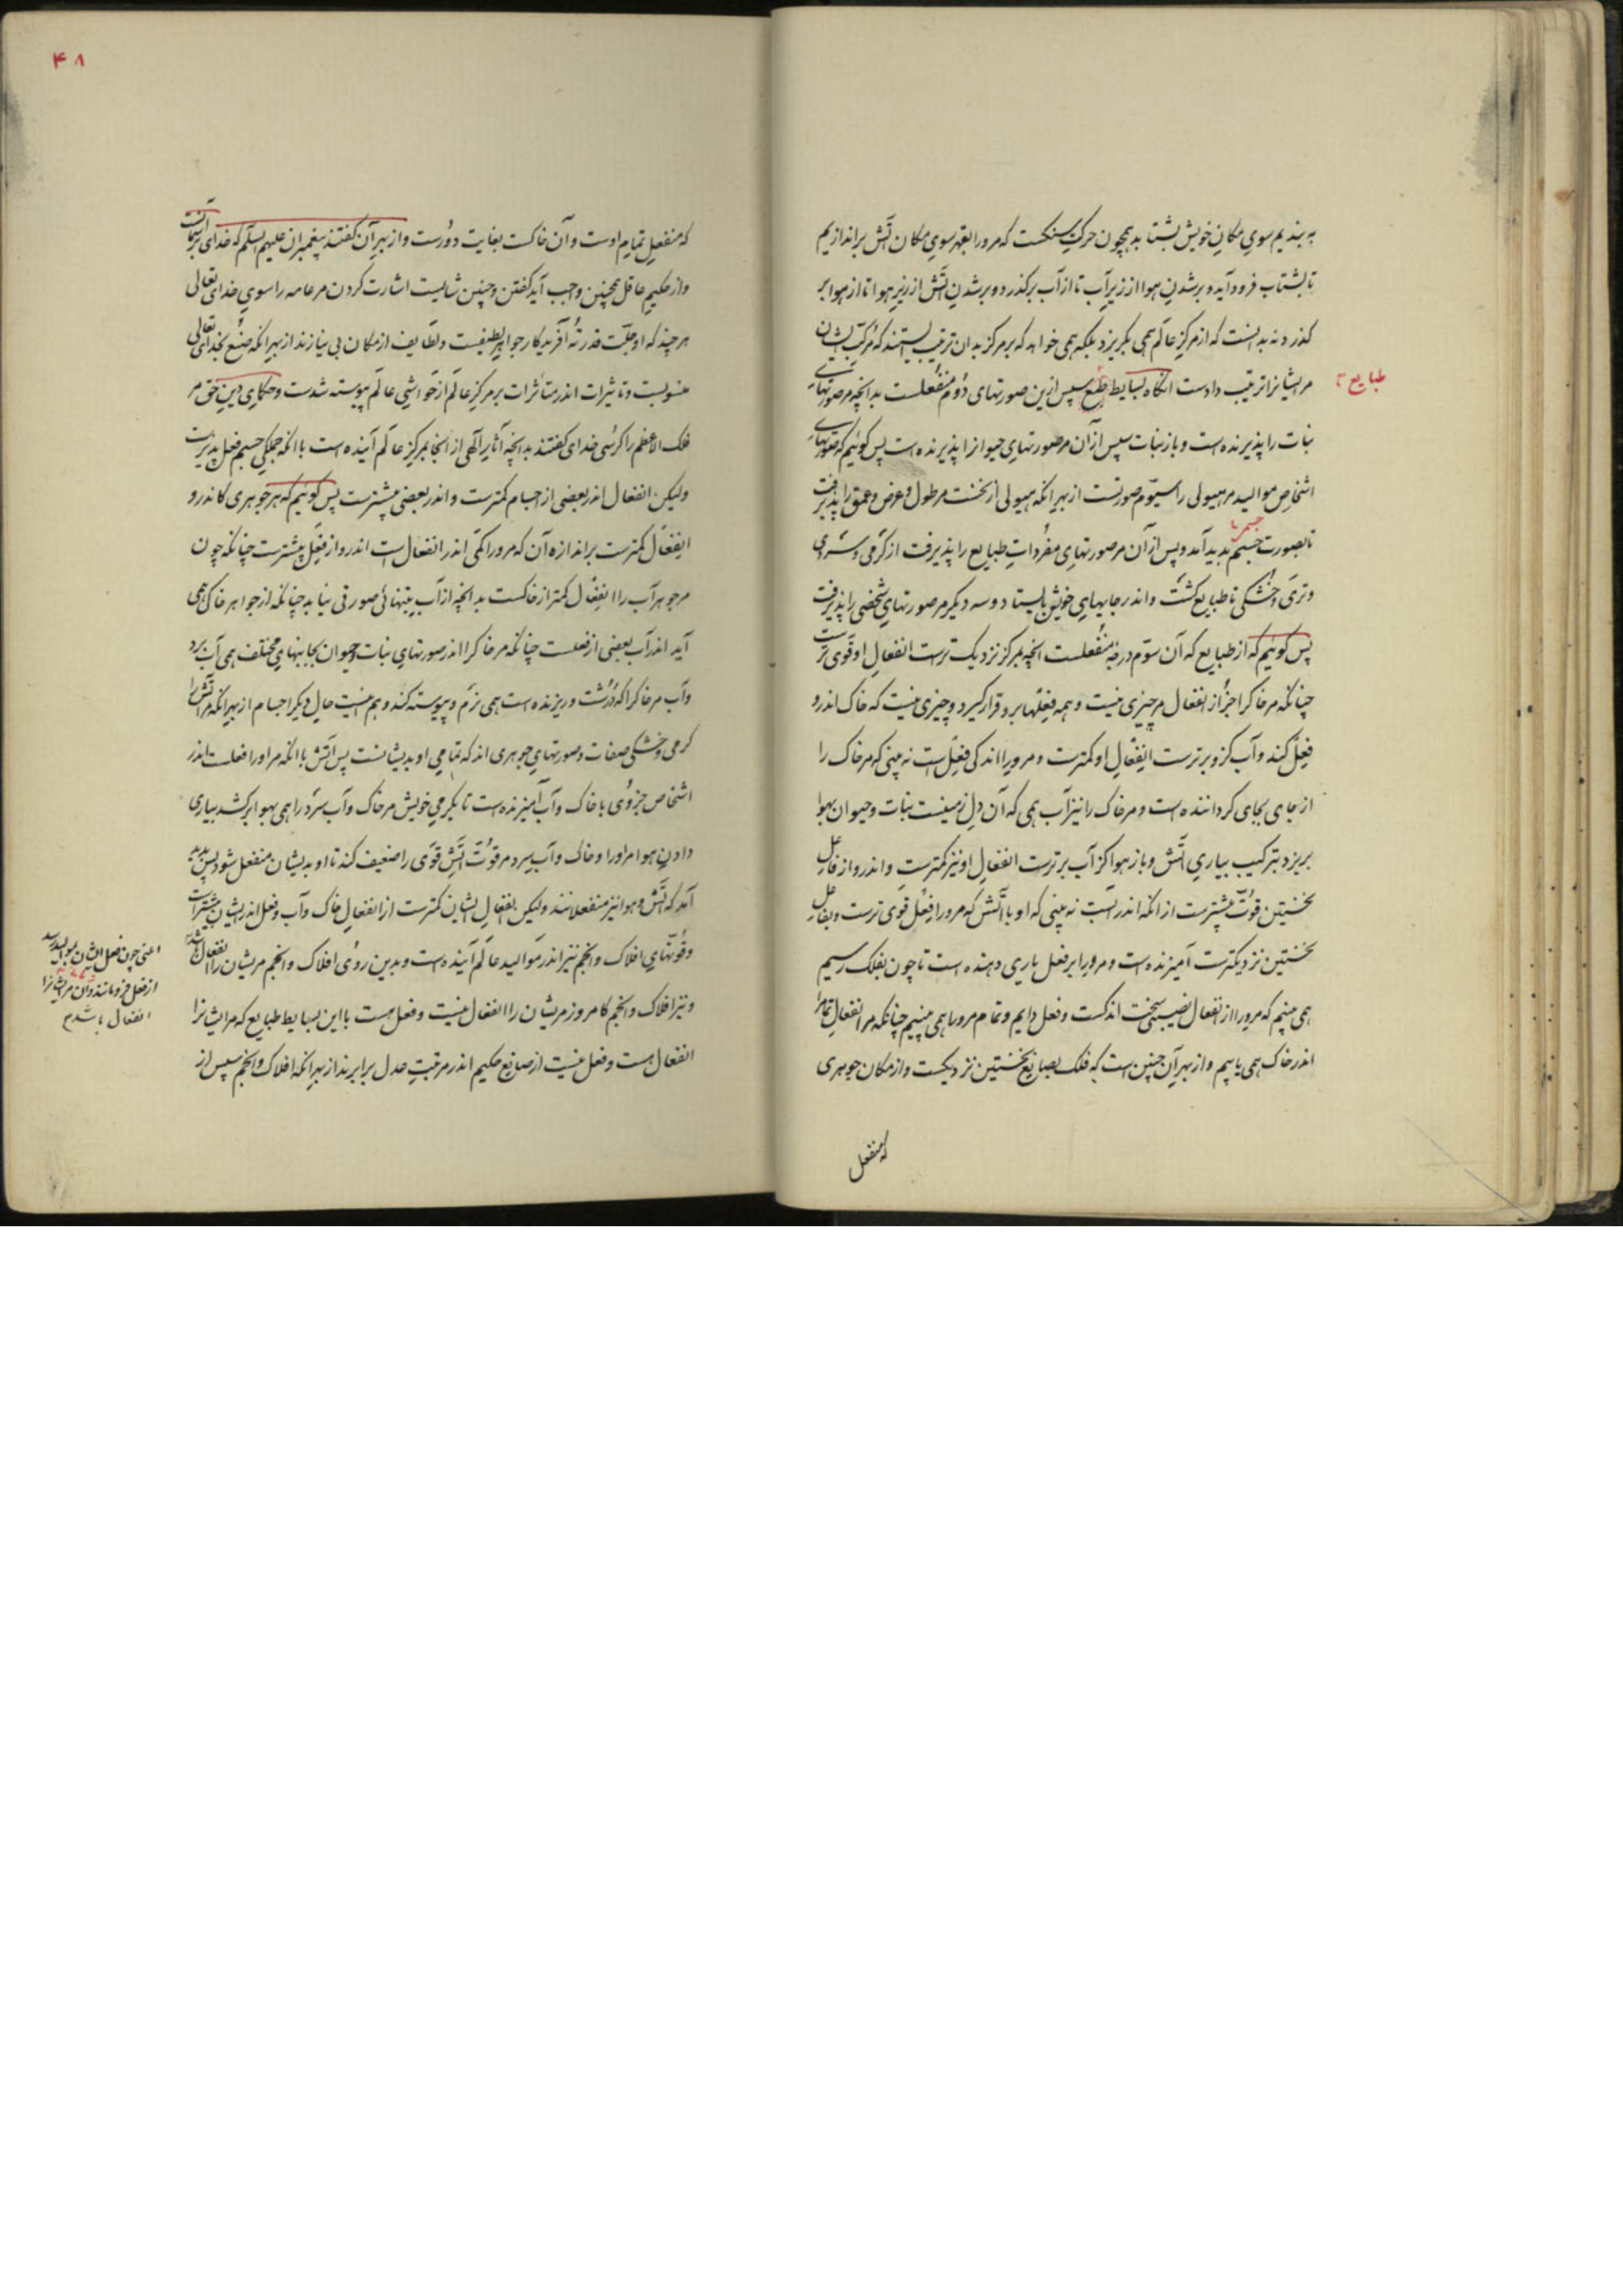 به بندیم سوی مکان خویش بشتابد همچون حرکت سنگست که مرورا بقهر سوی مکان آتش براندازیم
تا بشتاب فرود آید و برشدن هوا از زیر آب تا از آب برگذرد و برشدن آتش از زیر هوا تا از هوا بر
گذرد نه بدانست که از مرکز عالم همی بگریزد بلکه همی خواهد که بر مرکز بدان ترتیب بایستند که مرکب ایشان
مرایشانرا ترتیب دادست آنگاه بسایط طبع سپس ازین صورتهای دوم منفعلست بدانچه مر صورتهای
طبایع
نبات را پذیرنده است و باز نبات سپس از آن مر صورتهای حیوانرا پذیرنده است پس گوئیم که صورتهای
اشخاص موالید مر هیولی را سیوم صورتست از بهر آنکه هیولی از نخست مر طول و عرض و عمق را پذیرفت
تا بصورت جسم پدید آمد و پس از آن مر صورتهای مفردات طبایع را پذیرفت از گرمی و سردی
جسم
و تری و خشکی تا طبایع گشت و اندر جایهای خویش بایستاد و سه دیگر مر صورتهای شخصی را پذیرفت
پس گوئیم که از طبایع که آن سوم درجهٔ منفعلست آنچه بمرکز نزدیک ترست انفعال او قوی ترست
چنانکه مر خاکرا جز از انفعال مر چیزی نیست و همه فعلها برو قرار گیرد و چیزی نیست که خاک اندرو
فعل کند و آب کزو برترست انفعال او کمترست و مرورا اندکی فعل است نه بینی که مر خاک را
از جای بجای گرداننده است و مر خاک را نیز آب همی که آن دل زمینست نبات و حیوان بهوا
بریزد بترکیب بیاری آتش و باز هوا کز آب برترست انفعال او نیز کمترست و اندرو از فاعل
نخستین قوّت بیشترست از آنکه اندر آبست نه بینی که او با آتش که مرورا فعل قوی ترست و بفاعل
نخستین نزدیکترست آمیزنده است و مرورا بر فعل یاری دهنده است تا چون بفلک رسیم
همی بینیم که مرورا از انفعال نصیب سخت اندکست و فعل دایم و تمام مرورا همی بینیم چنانکه مر انفعال تمام را
اندر خاک همی یابیم و از بهر آن چنین است که فلک بصانع نخستین نزدیکست و از مکان جوهری
که منفعل
۴۸
که منفعل تمام اوست و آن خاکست بغایت دورست و از بهر آن گفتند پیغمبران علیهم السلم که خدای بر آسمانست
و از حکیم عاقل همچنین واجب آید گفتن و چنین شایست اشارت کردن مر عامه را سوی خدای تعالی
هرچند که او جلّت قدرته آفریدگار جواهر لطیفست و لطایف از مکان بی نیازند از بهر آنکه صنع بخدای تعالی
منسوبست و تاثیرات اندر متاثرات بر مرکز عالم از حواشی عالم پیوسته شدست و حکمای دین حق مر
فلک الاعظم را کرسی خدای گفتند بدانچه آثار الهی از آنجا بمرکز عالم آینده است با آنکه جملگی جسم فعل پذیرست
ولیکن انفعال اندر بعضی از اجسام کمترست و اندر بعضی بیشترست پس گوئیم که هر جوهری کاندرو
انفعال کمترست براندازه آن که مرورا کمی اندر انفعال است اندرو از فعل بیشترست چنانکه چون
مر جوهر آب را انفعال کمتر از خاکست بدانچه از آب بتنهائی صورتی نیاید چنانکه از جواهر خاک همی
آید اندر آب بعضی از فعلست چنانکه مر خاکرا اندر صورتهای نبات و حیوان بجانبهای مختلف همی آب برد
و آب مر خاکرا که درشت و ریزنده است همی نرم و پیوسته کند و هم اینست حال دیگر اجسام از بهر آنکه مر آتش را
گرمی و خشکی صفات و صورتهای جوهری اند که تمامی او بدیشانست پس آتش با آنکه مر اورا فعلست اندر
اشخاص جزوی با خاک و آب آمیزنده است تا بگرمی خویش مر خاک و آب سرد را همی بهوا برکشد بیاری
دادن هوا مر اورا و خاک و آب سرد مر قوّت آتش قوی را ضعیف کند تا او بدیشان منفعل شود پس پدید
آمد که آتش و هوا نیز منفعلانند ولیکن انفعال ایشان کمترست از انفعال خاک و آب و فعل اندر ایشان بیشترست
و قوّتهای افلاک و انجم نیز اندر موالید عالم آینده است و بدین روی افلاک و انجم مریشان را انفعال باشد
و نیز افلاک و انجم کامروز مریشان را انفعال نیست و فعل هست با این بسایط طبایع که مرایشانرا
انفعال هست و فعل نیست از صانع حکیم اندر مرتبت عدل برابرند از بهر آنکه افلاک و انجم سپس از
اعنی چون فعل ایشان بموالید رسد
از فعل فرومانند و آن مر ایشانرا
انفعال باشد